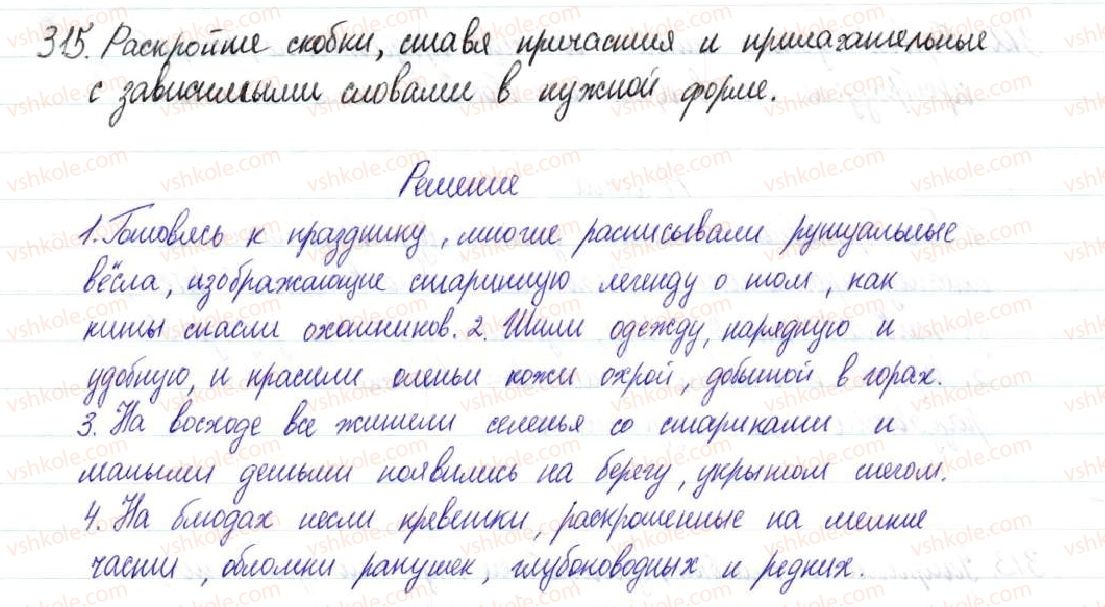 315. Раскройте скобки, ставя причастия и прилагательные
с зависимыми словами в нужной форме.
Решение
1. Готовясь к празднику, многие расписывали ритуальные
вёсла, изображающие старинную легенду о том, как
киты спасли охотников. 2. Шили одежду, нарядную и
удобную, и красили оленьи кожи охрой, добытой в горах.
3. На восходе все жители селенья со стариками и
малыми детьми появились на берегу, укрытом снегом.
4. На блюдах несли креветки, раскрошенные на мелкие
части, обломки ракушек, глубоководных и редких.